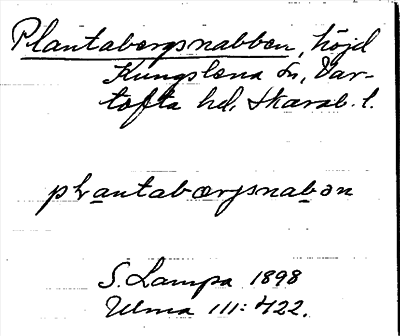 Plantabergsnabben, höjd
Kungslena sn, Var-
tofta hd, Skarab. l.
plantabærjsnabən
S. Lampa 1898
Ulma 111:422.